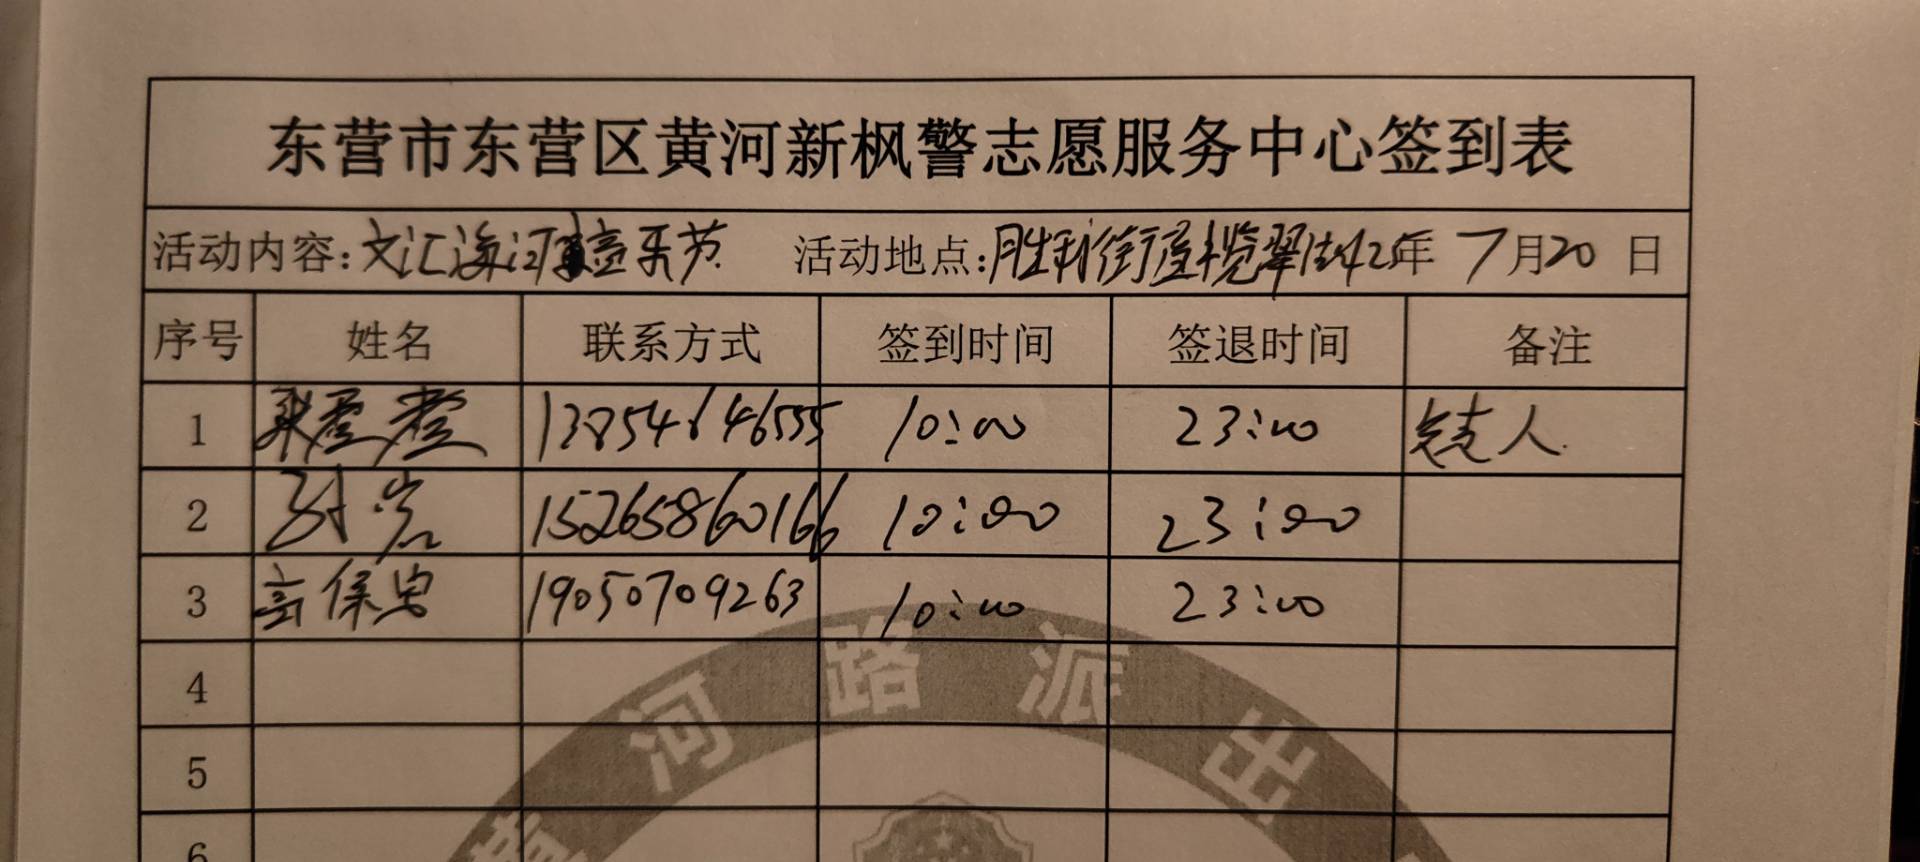 东营市东营区黄河新枫警志愿服务中心签到表
活动内容:文汇海河音乐节 活动地点:胜利街 25年 7月20日
序号 姓名 联系方式 签到时间 签退时间 备注
1 13854646555 10:00 23:00 负责人
2 15265860166 10:00 23:00
3 高保 19050709263 10:00 23:00
4
5
6
黄河路派出